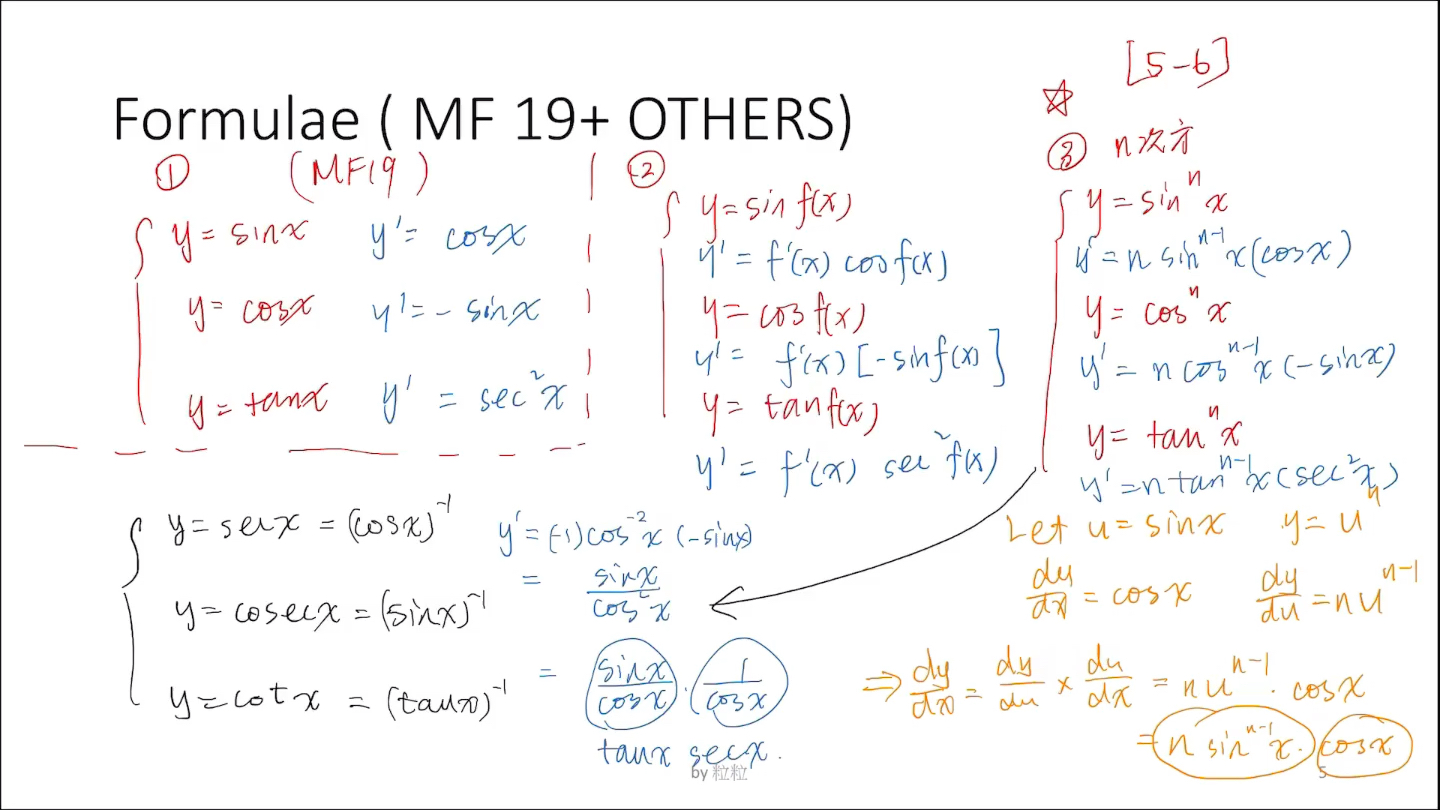 [5-6]
Formulae ( MF 19+ OTHERS)
☆
① (MF19)
y = sinx y' = cosx
y = cosx y' = - sinx
y = tanx y' = sec²x
②
y = sin f(x)
y' = f'(x) cosf(x)
y = cosf(x)
y' = f'(x) [-sinf(x)]
y = tanf(x)
y' = f'(x) sec²f(x)
③ n次方
y = sinⁿx
y' = n sinⁿ⁻¹x (cosx)
y = cosⁿx
y' = n cosⁿ⁻¹x (-sinx)
y = tanⁿx
y' = n tanⁿ⁻¹x (sec²x)
y = secx = (cosx)⁻¹
y = cosecx = (sinx)⁻¹
y = cotx = (tanx)⁻¹
y' = (-1)cos⁻²x (-sinx)
= sinx / cos²x
= sinx / cosx · 1 / cosx
tanx secx.
Let u = sinx y = uⁿ
du/dx = cosx dy/du = nuⁿ⁻¹
⇒ dy/dx = dy/du × du/dx = nuⁿ⁻¹ · cosx
= n sinⁿ⁻¹x · cosx
by 粒粒
5